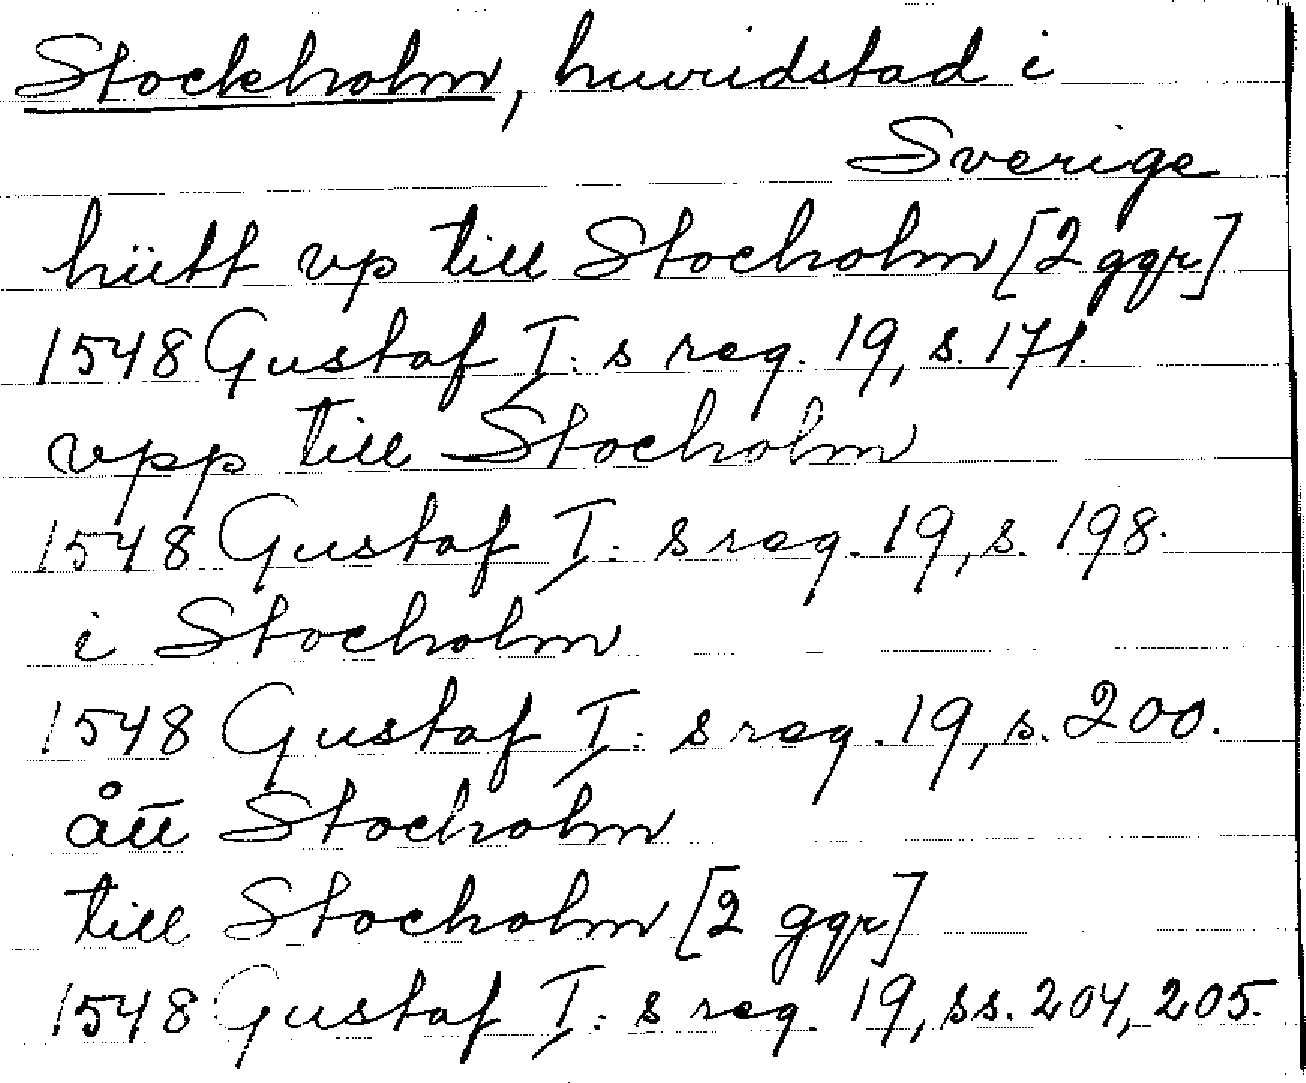 Stockholm, huvudstad i
Sverige
hiitt vp till Stocholm [2 ggr]
1548 Gustaf I:s reg. 19, s. 171.
vpp till Stocholm
1548 Gustaf I:s reg. 19, s. 198.
i Stocholm
1548 Gustaf I:s reg. 19, s. 200.
Stocholm
till Stocholm [2 ggr]
1548 Gustaf I:s reg. 19, ss. 204, 205.